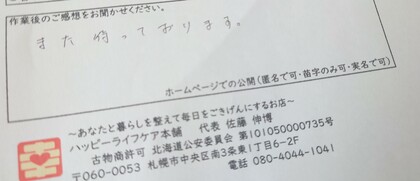 作業後のご感想をお聞かせください。
また待っております。
ホームページでの公開(匿名で可・苗字のみ可・実名で可)
～あなたと暮らしを整えて毎日をごきげんにするお店～
ハッピーライフケア本舗 代表 佐藤 伸博
古物商許可 北海道公安委員会 第101050000735号
〒060-0053 札幌市中央区南3条東1丁目6-2F
電話 080-4044-1041